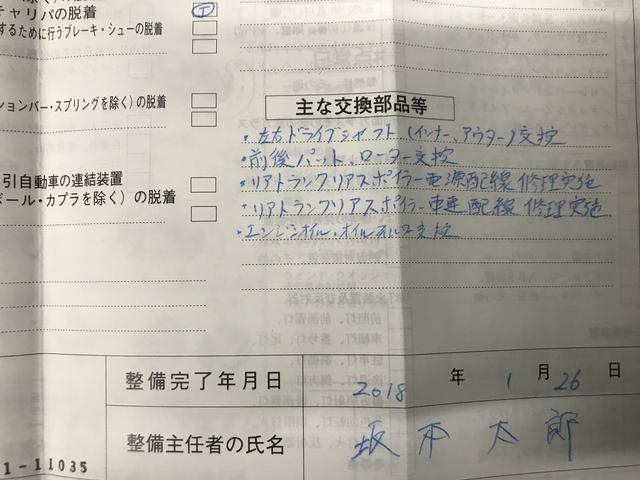 キャリパの脱着
するために行うブレーキ・シューの脱着
ションバー・スプリングを除く)の脱着
引自動車の連結装置
ボール・カプラを除く)の脱着
主な交換部品等
・左右ドライブシャフト(インナー、アウター)交換
・前後パット、ローター交換
・リアトランクリアスポイラー電源配線修理実施
・リアトランクリアスポイラー 配線修理実施
・エンジンオイル、オイルフィルター交換
整備完了年月日
2018年1月26日
整備主任者の氏名
坂本太郎
1-11035